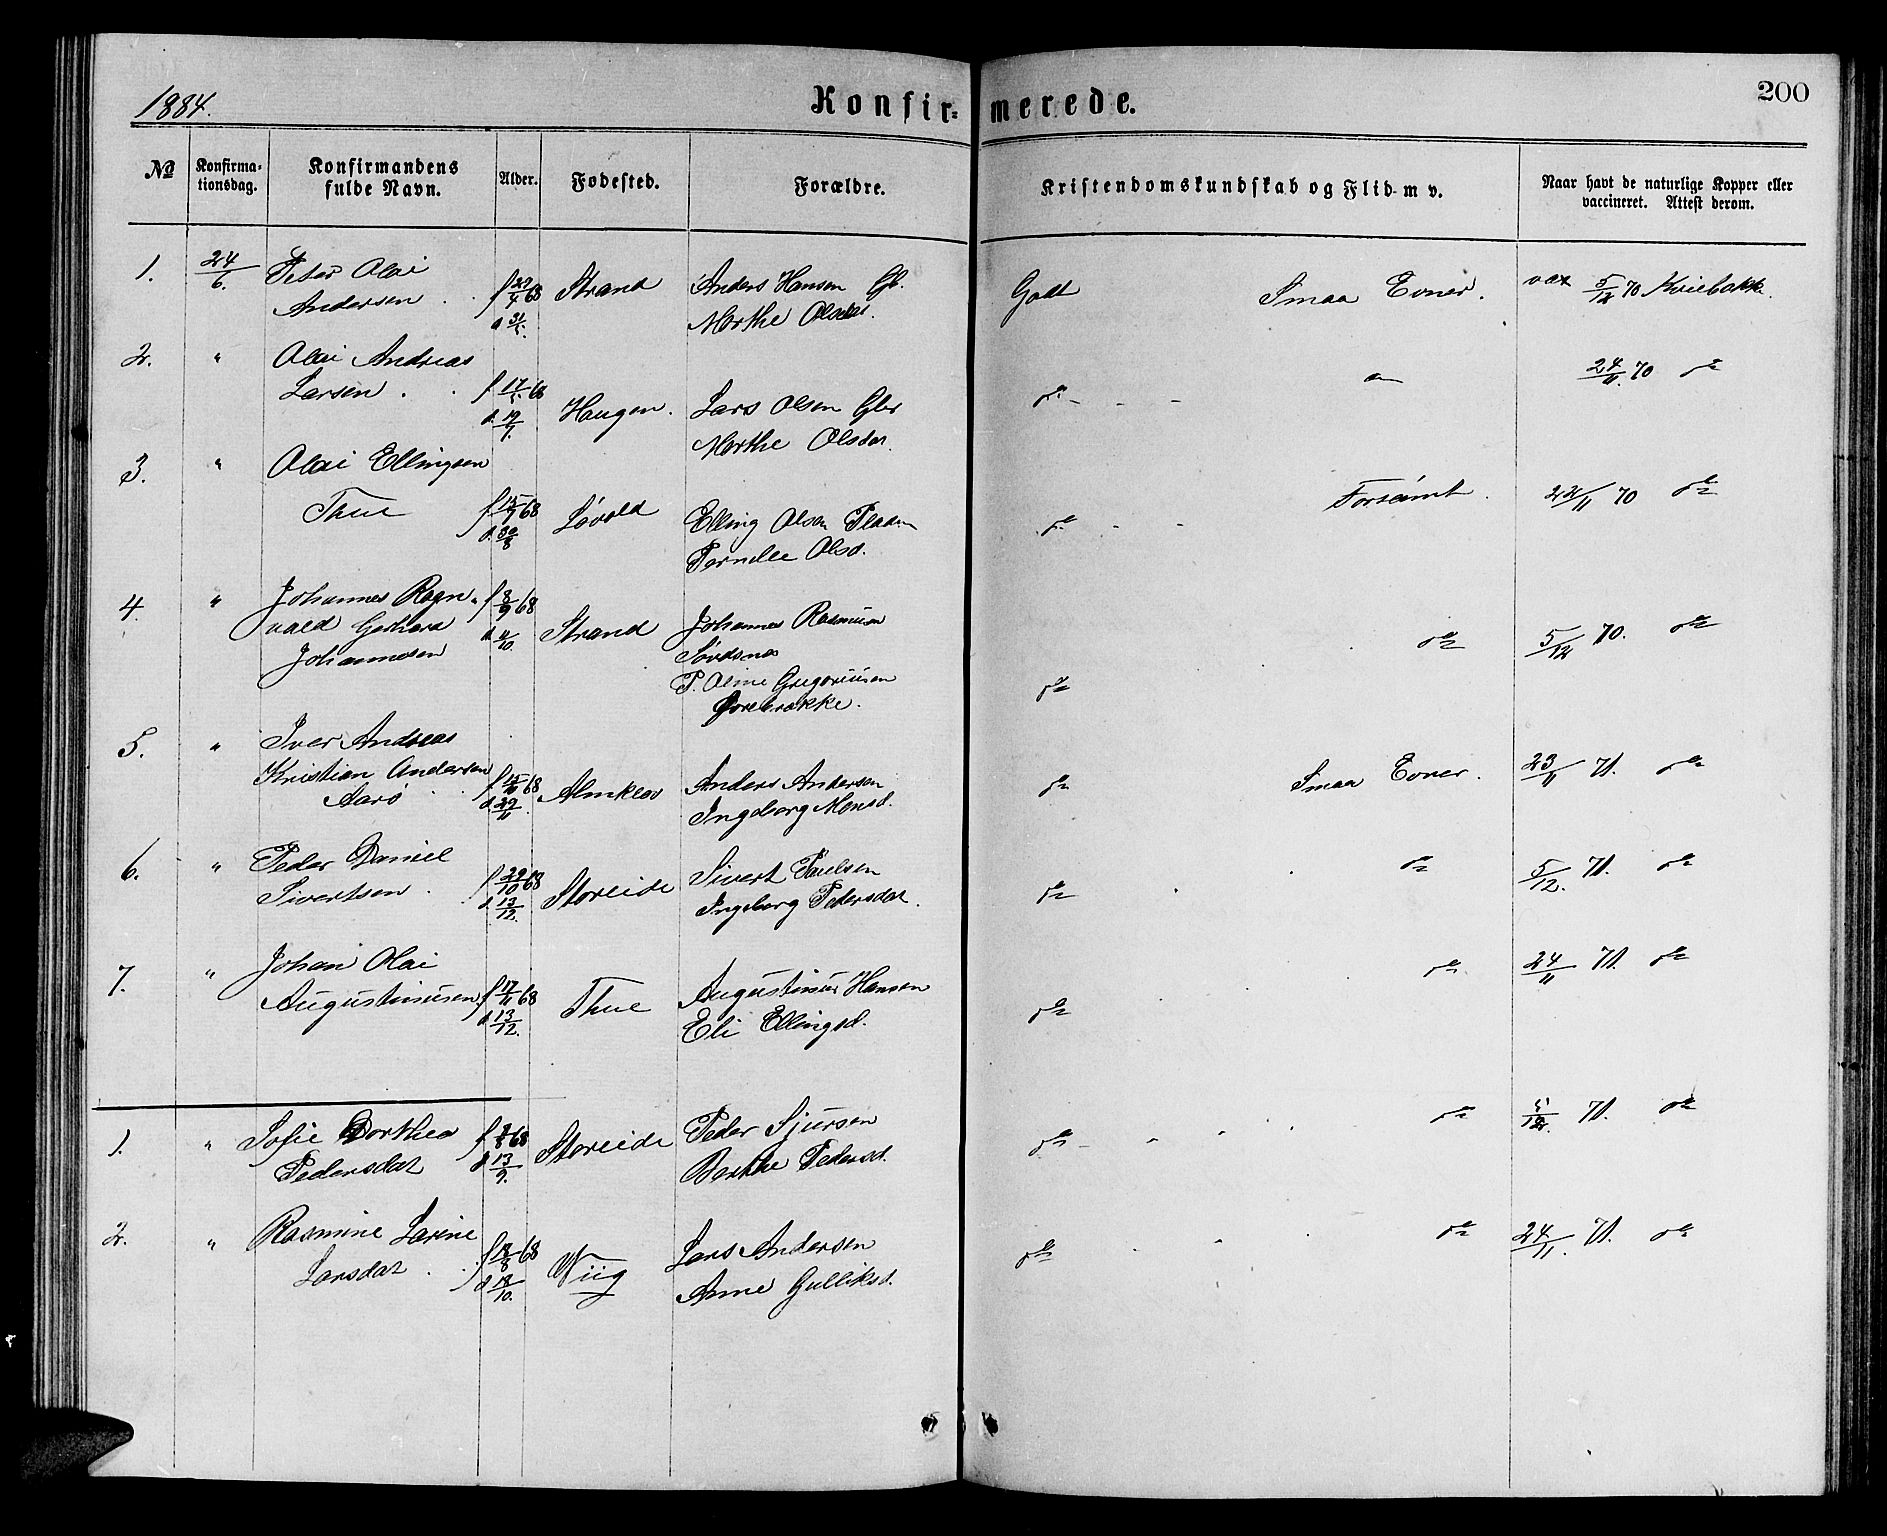 1884.
Konfir=
merede.
200
No
Konfirma=
tionsdag.
Konfirmandens
fulde Navn.
Alder.
Fødested.
Forældre.
Kristendomskundskab og Flid m v.
Naar havt de naturlige Kopper eller
vaccineret. Attest derom.
1. 24/6. Peter Olai f 29/4 68 Strand Anders Hansen Gb. Godt Smaa Evner. vax 5/12 70
Andersen . . d 31/5. Marthe Olsdat.
2. " Olai Andreas 24/11. 70 do
Larsen . . f 17/5 68 Haugen. Lars Olsen Gbr do - - -
d 19/7. Marthe Olsdat.
3. " Olai Ellingsen Forsømt. 22/11 70 do
Thue f 15/7 68 Løvold Elling Olsen do - -
d. 30/8 Pernelle Olsd.
4. " Johannes Ragn= f 8/9 68 Strand Johannes Rasmusen do 5/12 70. do
vald Gerhard d 11/10.
Johannesen P. Oline Gregoriusen do
5. " Iver Andreas
Kristian Andersen f 15/10 68 Almklov Anders Andersen do Smaa Evner. 23/11 71. do
Aarø . d 29/11. Ingeborg Monsd.
6. " Peder Daniel f 29/10 68 Storeide Sivert Paulsen do do 5/12. 71. do
Sivertsen . d. 13/12. Ingeborg Pedersdat.
7. " Johan Olai f 17/11 68 Thue Augustinus Hansen do do 24/11 71. do
Augustinusen d 13/12. Eli Ellingsd.
1. " Sofie Dorthea f 7/8 68 Storeide Peder Sjursen do - - - do 5/12. 71. do
Pedersdat d 13/9. Berthe Pedersd.
2. " Rasmine Larine f 18/8 68 Wiig Lars Andersen do . . . do 24/11. 71. do
Larsdat . . d 18/10. Anne Gulliksd.